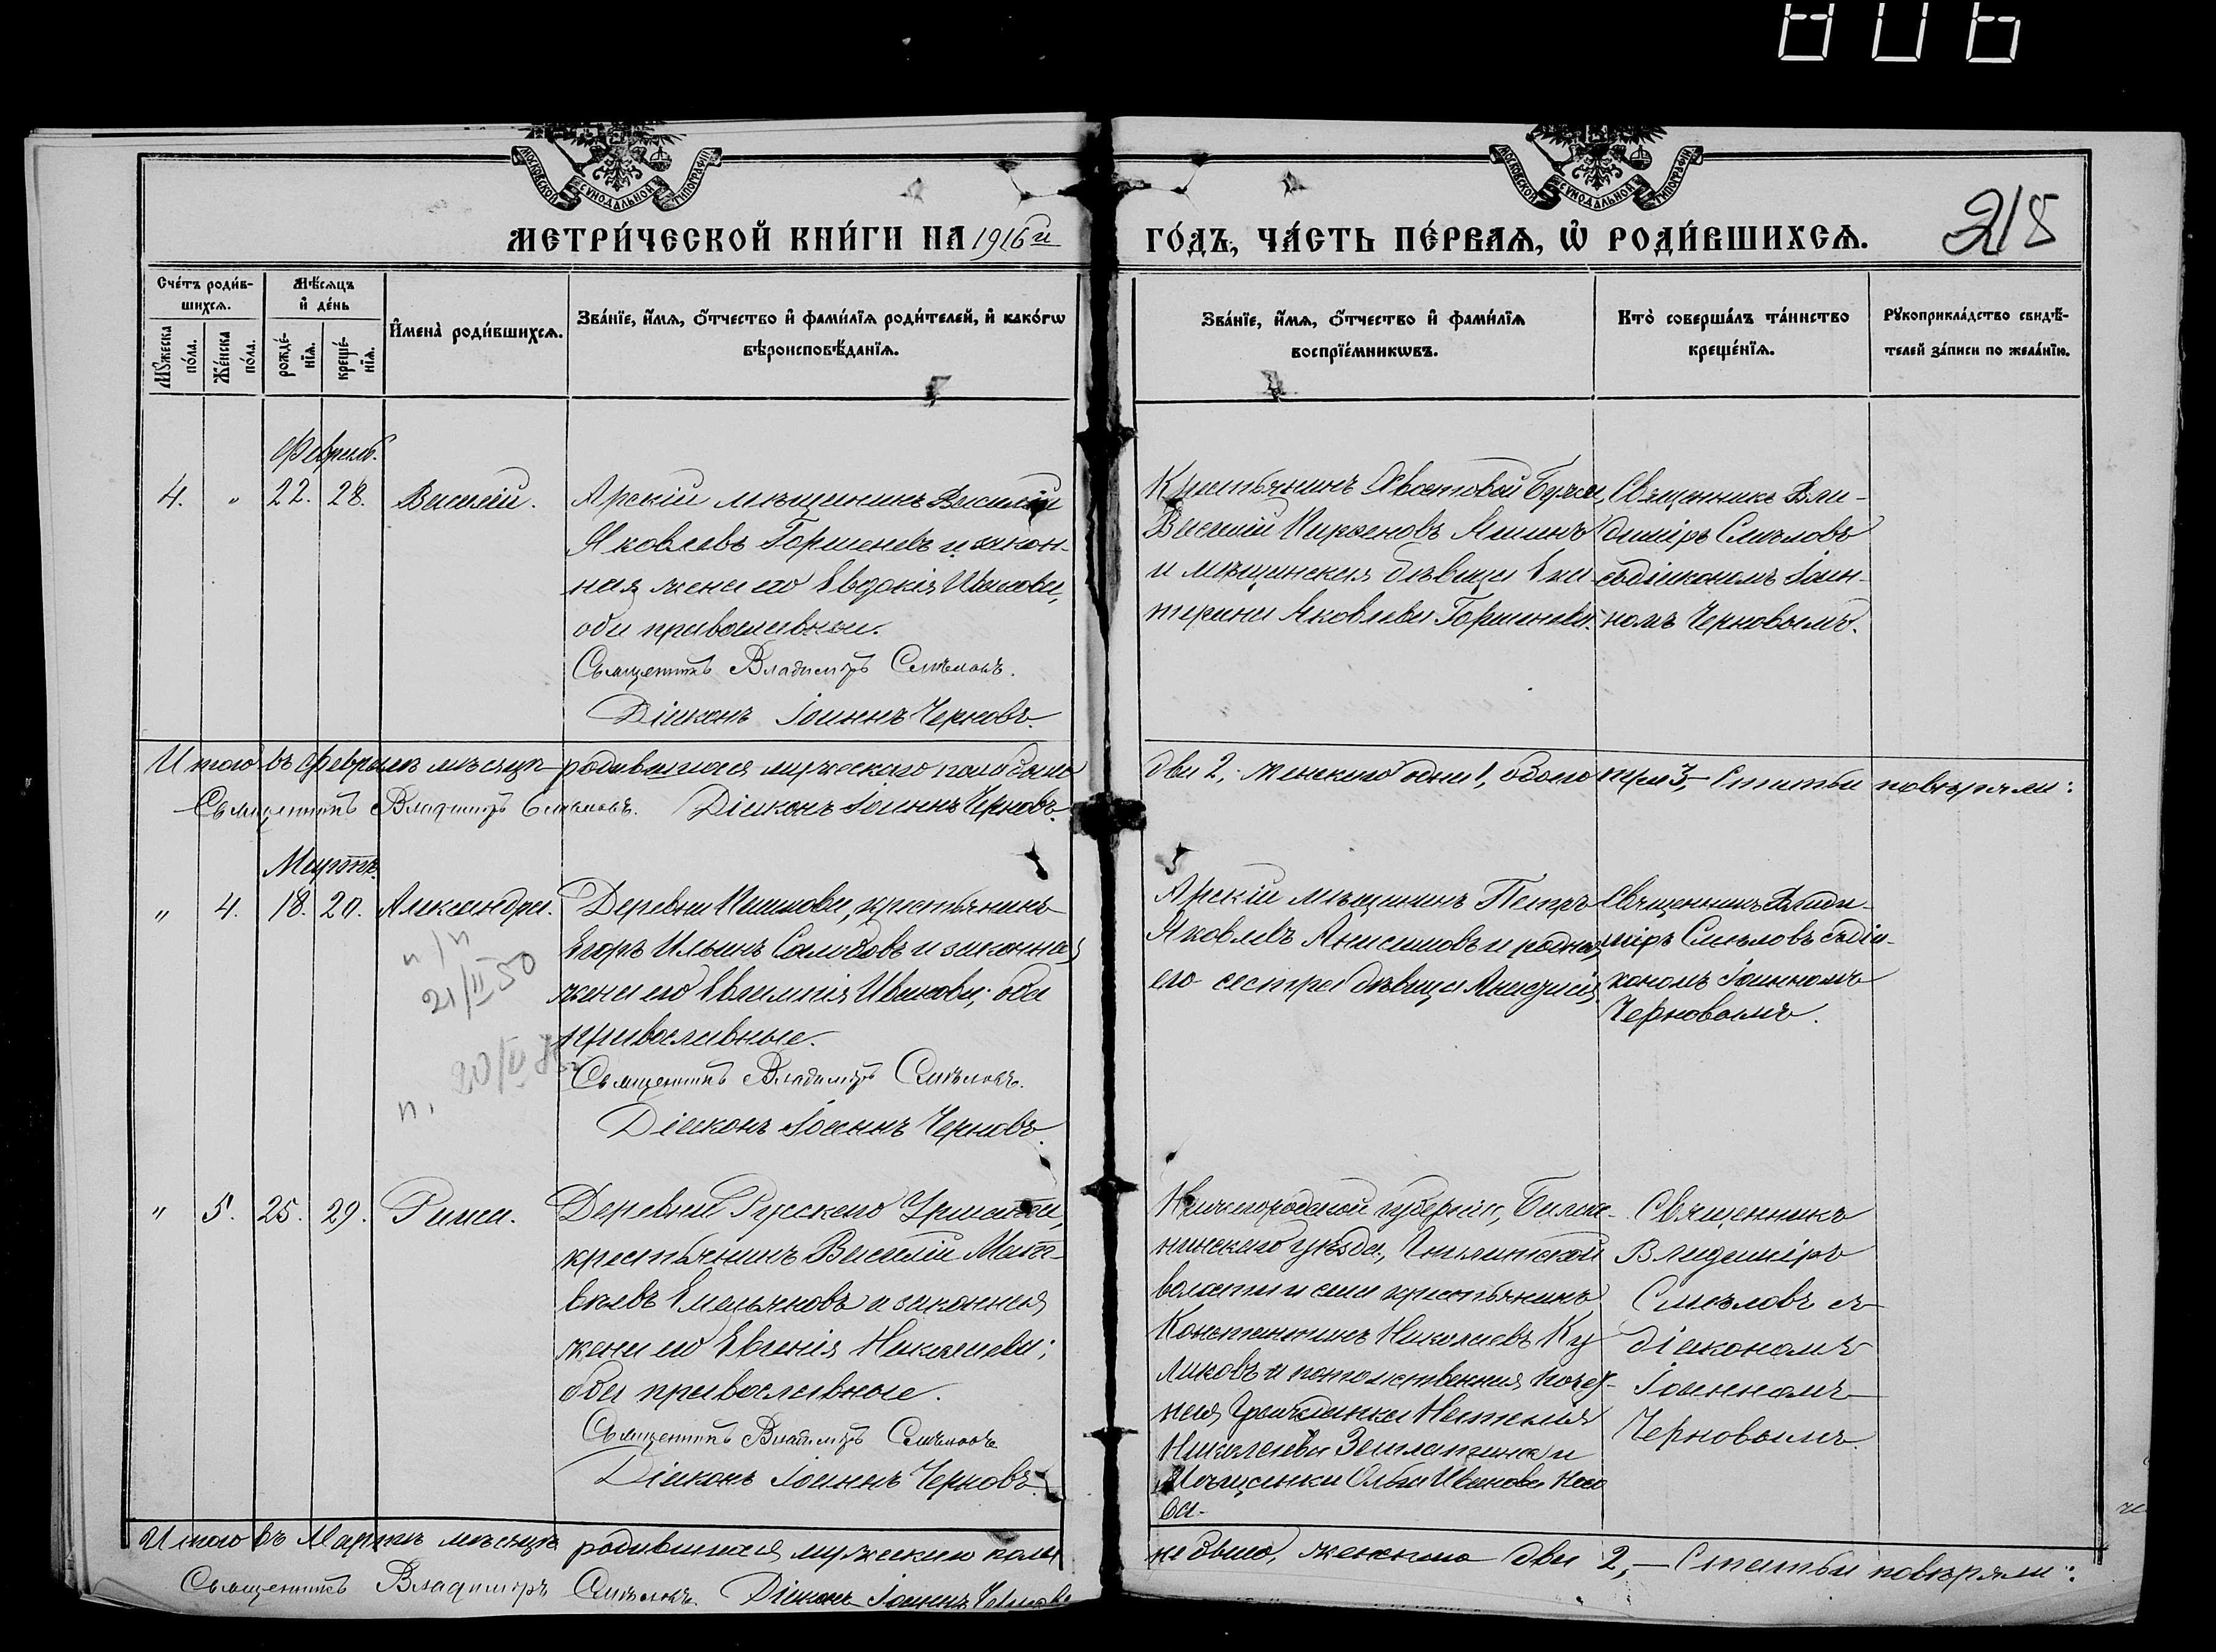 806
МОСКОВСКОЙ СѴНОДАЛЬНОЙ ТИПОГРАФІИ
МОСКОВСКОЙ СѴНОДАЛЬНОЙ ТИПОГРАФІИ
МЕТРИ́ЧЕСКОЙ КНИ́ГИ НА 1916й
ГО́ДЪ, ЧА́СТЬ ПЕ́РВАѦ, Ѡ҆ РОДИ́ВШИХСѦ.
218
Сче́тъ роди́в-
шихсѧ.
Мꙋ́жеска
по́ла.
Же́нска
по́ла.
Мѣ́сѧцъ
и҆ де́нь
рожде́-
нїѧ.
креще́-
нїѧ.
И҆мена̀ роди́вшихсѧ.
Зва́нїе, и҆́мѧ, ѻ҆́тчество и҆ фами́лїѧ роди́телей, и҆ како́гѡ
вѣроисповѣ́данїѧ.
Зва́нїе, и҆́мѧ, ѻ҆́тчество и҆ фами́лїѧ
воспрїе́мникѡвъ.
Кто̀ соверша́лъ та́инство
креще́нїѧ.
Рꙋкоприкла́дство свидѣ́-
телей за́писи по жела́нїю.
Февраль.
4. " 22. 28. Василій.
Арскій мѣщанинъ Василій
Яковлевъ Горшеневъ и закон-
ная жена его Евдокія Иванова,
оба православные.
Священникъ Владиміръ Смѣловъ.
Діаконъ Іоаннъ Черновъ.
Крестьянинъ
Василій
и мѣщанская дѣвица Ека-
терина Яковлева Горшенева.
Священникъ Вла-
диміръ Смѣловъ
съ діакономъ Іоан-
номъ Черновымъ.
Итого въ Февралѣ мѣсяцѣ родившихся мужескаго пола было
два 2, женскаго одна 1, обоего пола 3,- Статьи повѣряли:
Священникъ Владиміръ Смѣловъ. Діаконъ Іоаннъ Черновъ.
Мартъ.
" 4. 18. 20. Александра.
21/II 50
п. 20/II
Деревни крестьянинъ
Егоръ Ильинъ и законная
жена его Евлампія Иванова; оба
православные.
Священникъ Владиміръ Смѣловъ.
Діаконъ Іоаннъ Черновъ.
Арскій мѣщанинъ Петръ
Яковлевъ Анисимовъ и родная
его сестра дѣвица
Священникъ Влади-
міръ Смѣловъ съ діа-
кономъ Іоанномъ
Черновымъ.
" 5. 25. 29. Римма.
Деревни Русскаго Урмата,
крестьянинъ Василій Мат-
вѣевъ Емельяновъ и законная
жена его Евгенія Николаева;
оба православные.
Священникъ Владиміръ Смѣловъ
Діаконъ Іоаннъ Черновъ.
Нижегородской губерніи, Балах-
нинскаго уѣзда,
волости и села крестьянинъ
Константинъ Николаевъ Ку
ликовъ и потомственная почет-
ная гражданка Наталія
Николаева и
Мѣщанка Ольга Иванова
ва.
Священникъ
Владиміръ
Смѣловъ съ
діакономъ
Іоанномъ
Черновымъ.
Итого въ Мартѣ мѣсяцѣ родившихся мужескаго пола
не было, женскаго два 2,- Статьи повѣряли:
Священникъ Владиміръ Смѣловъ. Діаконъ Іоаннъ Черновъ